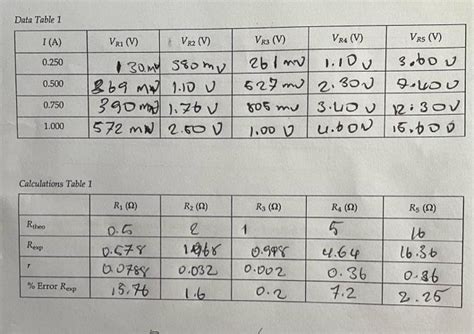 Data Table 1
I (A) VR1 (V) VR2 (V) VR3 (V) VR4 (V) VR5 (V)
0.250 130mv 580mv 261mv 1.10 V 3.60 V
0.500 269 mv 1.10 V 527 mv 2.30V 7.40V
0.750 390mv 1.76 V 805 mv 3.40 V 12.30V
1.000 572 mv 2.50 V 1.00 V 4.60V 15.60V
Calculations Table 1
R1 (Ω) R2 (Ω) R3 (Ω) R4 (Ω) R5 (Ω)
Rtheo 0.5 2 1 5 16
Rexp 0.578 1.968 0.998 4.64 16.36
r 0.0788 0.032 0.002 0.36 0.36
% Error Rexp 15.76 1.6 0.2 7.2 2.25